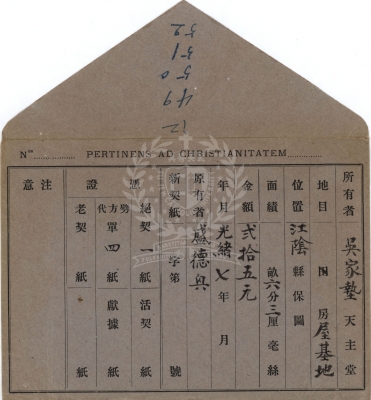 12 49 50 51 52
Nᵒˢ............ PERTINENS AD CHRISTIANITATEM............
所有者 吳家墊 天主堂
地目 田 房屋基地
位置 江陰縣保圖
面積 畝六分三厘毫絲
金額 貳拾五元
年月 光緒七年 月
原有者 盛德興
新契紙 字第 號
憑證 絕契 一 紙 活契 紙
勞方代單 四 紙 獻據 紙
老契 紙
注意